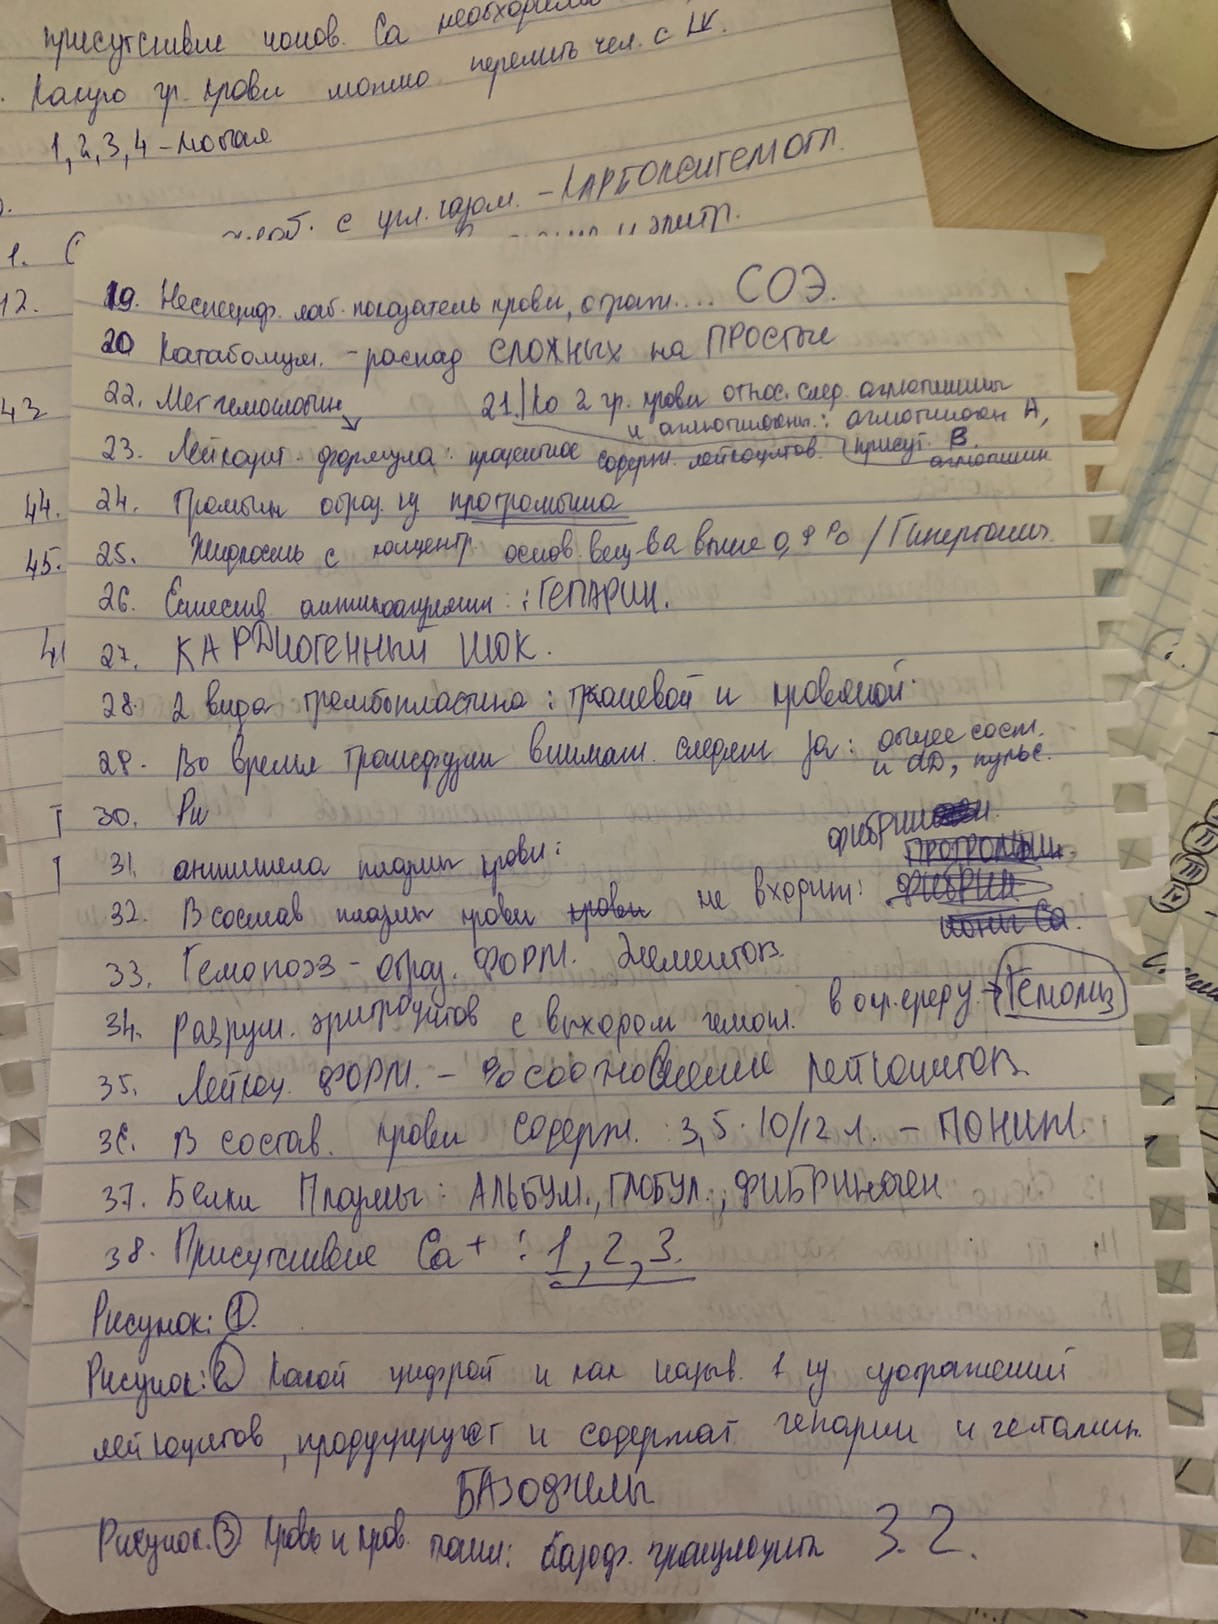 присутствие ионов. Ca необходимы
Какую гр. крови можно перелить чел. с IV.
1, 2, 3, 4 - любая
с угл. газом. - КАРБОКСИГЕМОГЛ.
1. С
12.
43
44.
45.
19. Неспециф. лаб. показатель крови, отраж.... СОЭ.
20 Катаболизм. - распад СЛОЖНЫХ на ПРОСТЫЕ
22. Метгемоглобин
21. Ко 2 гр. крови относ. след. агглютинины
и агглютиногены: агглютиноген А,
23. Лейкоцит. формула: процентное содерж. лейкоцитов. присут. В.
агглютинин
24. Тромбин образ. из протромбина
25. Жидкость с концентр. основ. вещ-ва выше 0,9 % / Гипертонич.
26. Естеств антикоагулянт: ГЕПАРИН.
27. КАРДИОГЕННЫЙ ШОК.
28. 2 вида тромбопластина: тканевой и кровяной.
29. Во время трансфузии внимат. следят за: общее сост.
и АД, пульс.
30. Рн
31. антитела плазмы крови:
фибрин
ПРОТРОМБИН
32. В состав плазмы крови крови не входит: ФИБРИН
ионы Ca.
33. Гемопоэз - образ. ФОРМ. Элементов
34. разруш. эритроцитов с выходом гемогл. в окр. среду → Гемолиз
35. Лейкоц. ФОРМ. - % соотношение лейкоцитов
36. В состав. крови содерж. 3,5·10/12 л. - ПОНИЖ.
37. Белки Плазмы: АЛЬБУМ., ГЛОБУЛ., ФИБРИНОГЕН
38. Присутствие Ca+ : 1, 2, 3.
Рисунок: 1.
Рисунок: 2 Какой цифрой и как назыв. 1 из изображений
лейкоцитов, продуцируют и содержат гепарин и гистамин.
БАЗОФИЛЫ
Рисунок. 3 Кровь и кров. ткани: базоф. гранулоциты 3. 2.